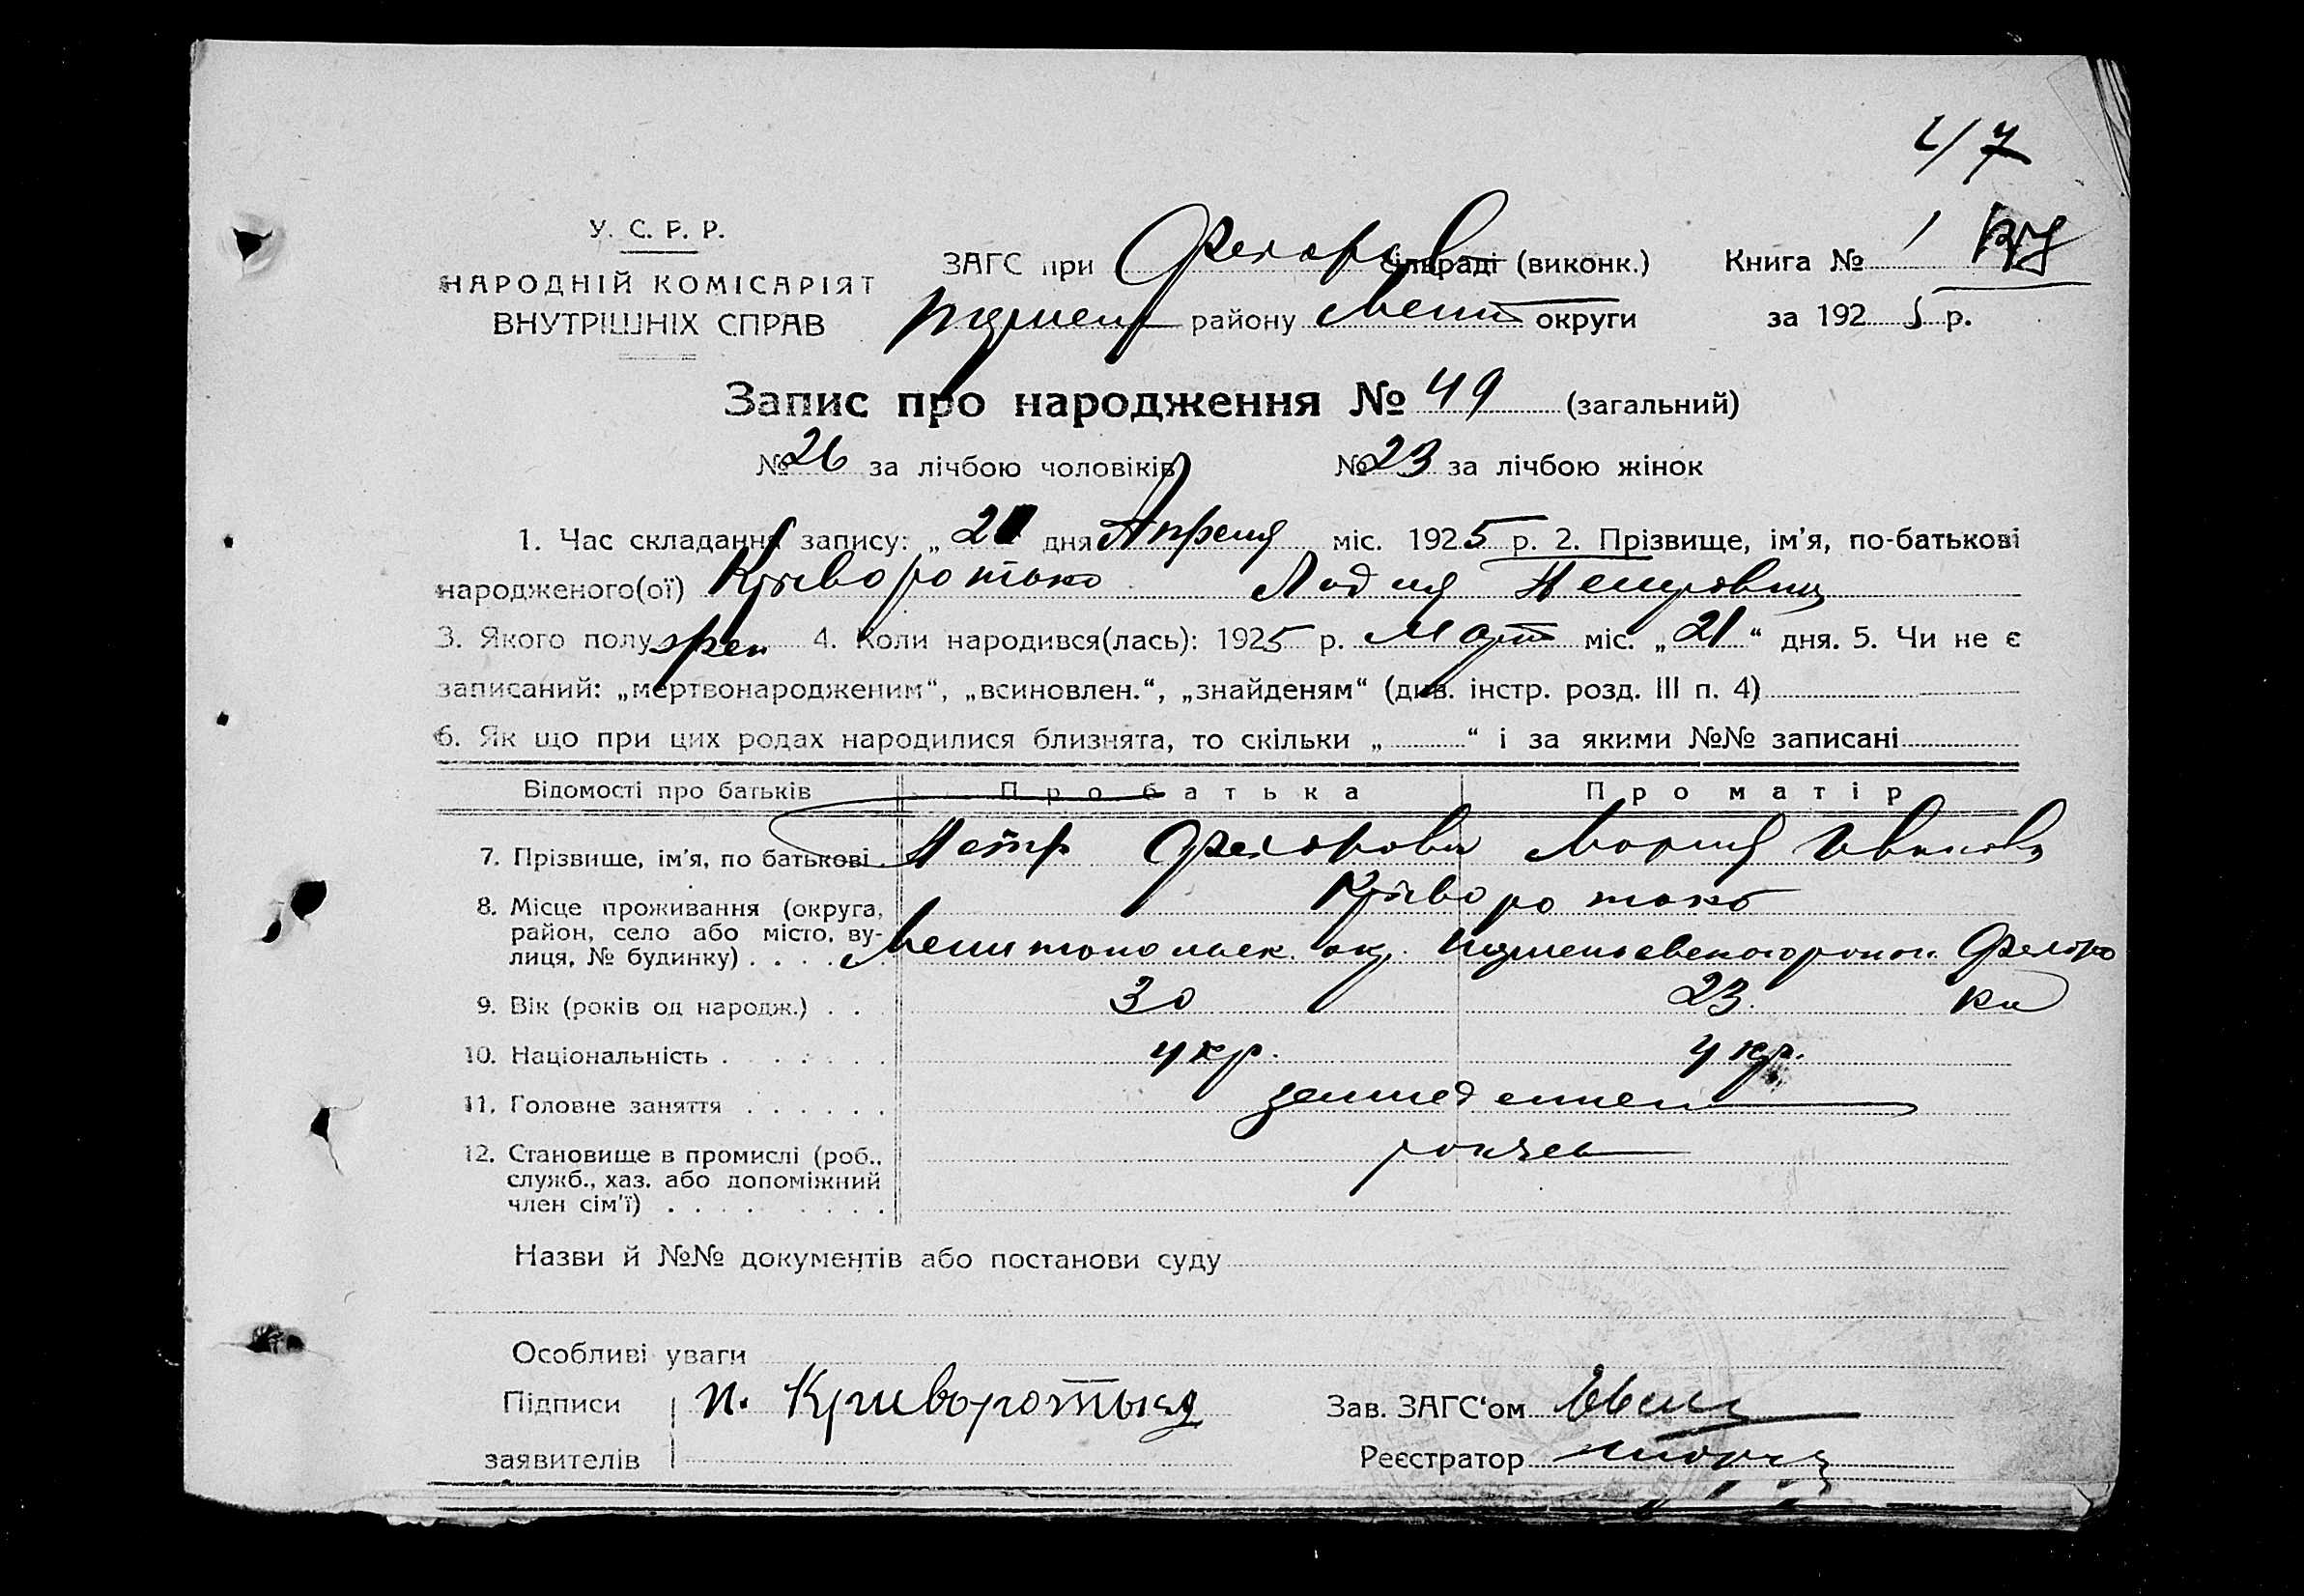 47
У. С. Р. Р.
НАРОДНІЙ КОМІСАРІЯТ
ВНУТРІШНІХ СПРАВ
ЗАГС при Федоров сільраді (виконк.) Книга № 1
району Мелит округи за 1925 р.
Запис про народження № 49 (загальний)
№ 26 за лічбою чоловіків № 23 за лічбою жінок
1. Час складання запису: „ 21 дня Апреля міс. 1925 р. 2. Прізвище, ім'я, по-батькові
народженого(ої) Криворотько Лидия Петровна
3. Якого полу жен 4. Коли народився(лась): 1925 р. Март міс. „ 21 “ дня. 5. Чи не є
записаний: „мертвонародженим“, „всиновлен.“, „знайденям“ (див. інстр. розд. III п. 4)
6. Як що при цих родах народилися близнята, то скільки „ “ і за якими №№ записані
Відомості про батьків Про батька Про матір
7. Прізвище, ім'я, по батькові Петр Федорович Мария Ивановна
Криворотько
8. Місце проживання (округа,
район, село або місто, ву-
лиця, № будинку) Мелитопольск. окр. район Федоро
вка
9. Вік (років од народж.) 30 23
10. Національність укр. укр.
11. Головне заняття земледелие
12. Становище в промислі (роб.,
служб., хаз. або допоміжний
член сім'ї) хозяев
Назви й №№ документів або постанови суду
Особливі уваги
Підписи П. Криворотько Зав. ЗАГС‘ом
заявителів Реєстратор